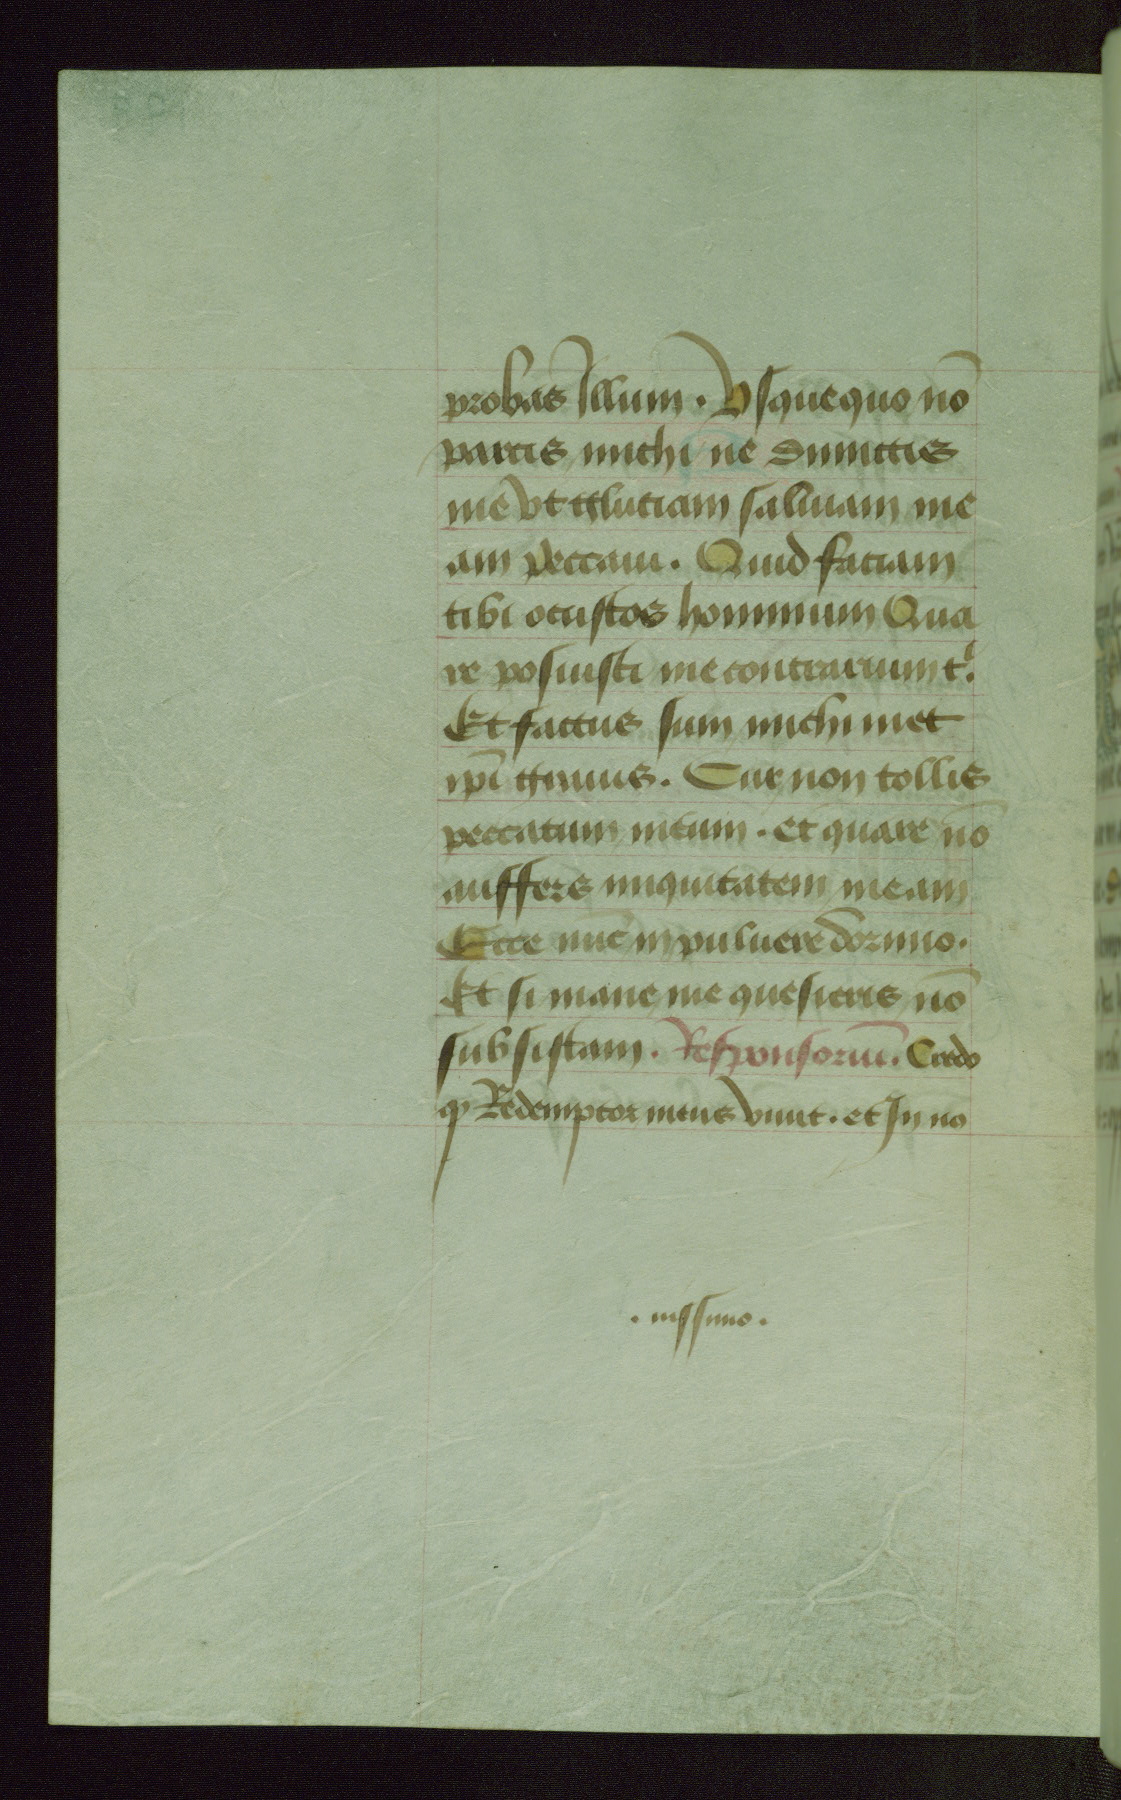 probas Illum. Vsquequo nō
parcis michi ne dimittis
me vt glutiam saliuam me
am peccaui. Quid faciam
tibi o custos hominum Qua
re posuisti me contrarium tⁱ.
Et factus sum michimet
ipī grauis. Cur non tollis
peccatum meum. et quare nō
auffers iniquitatem meam
Ecce nūc in puluere dormio.
Et si mane me quesieris nō
subsistam. Responsoriū. Credo
ꝙ Redemptor meus viuit. et In no
. uissimo.